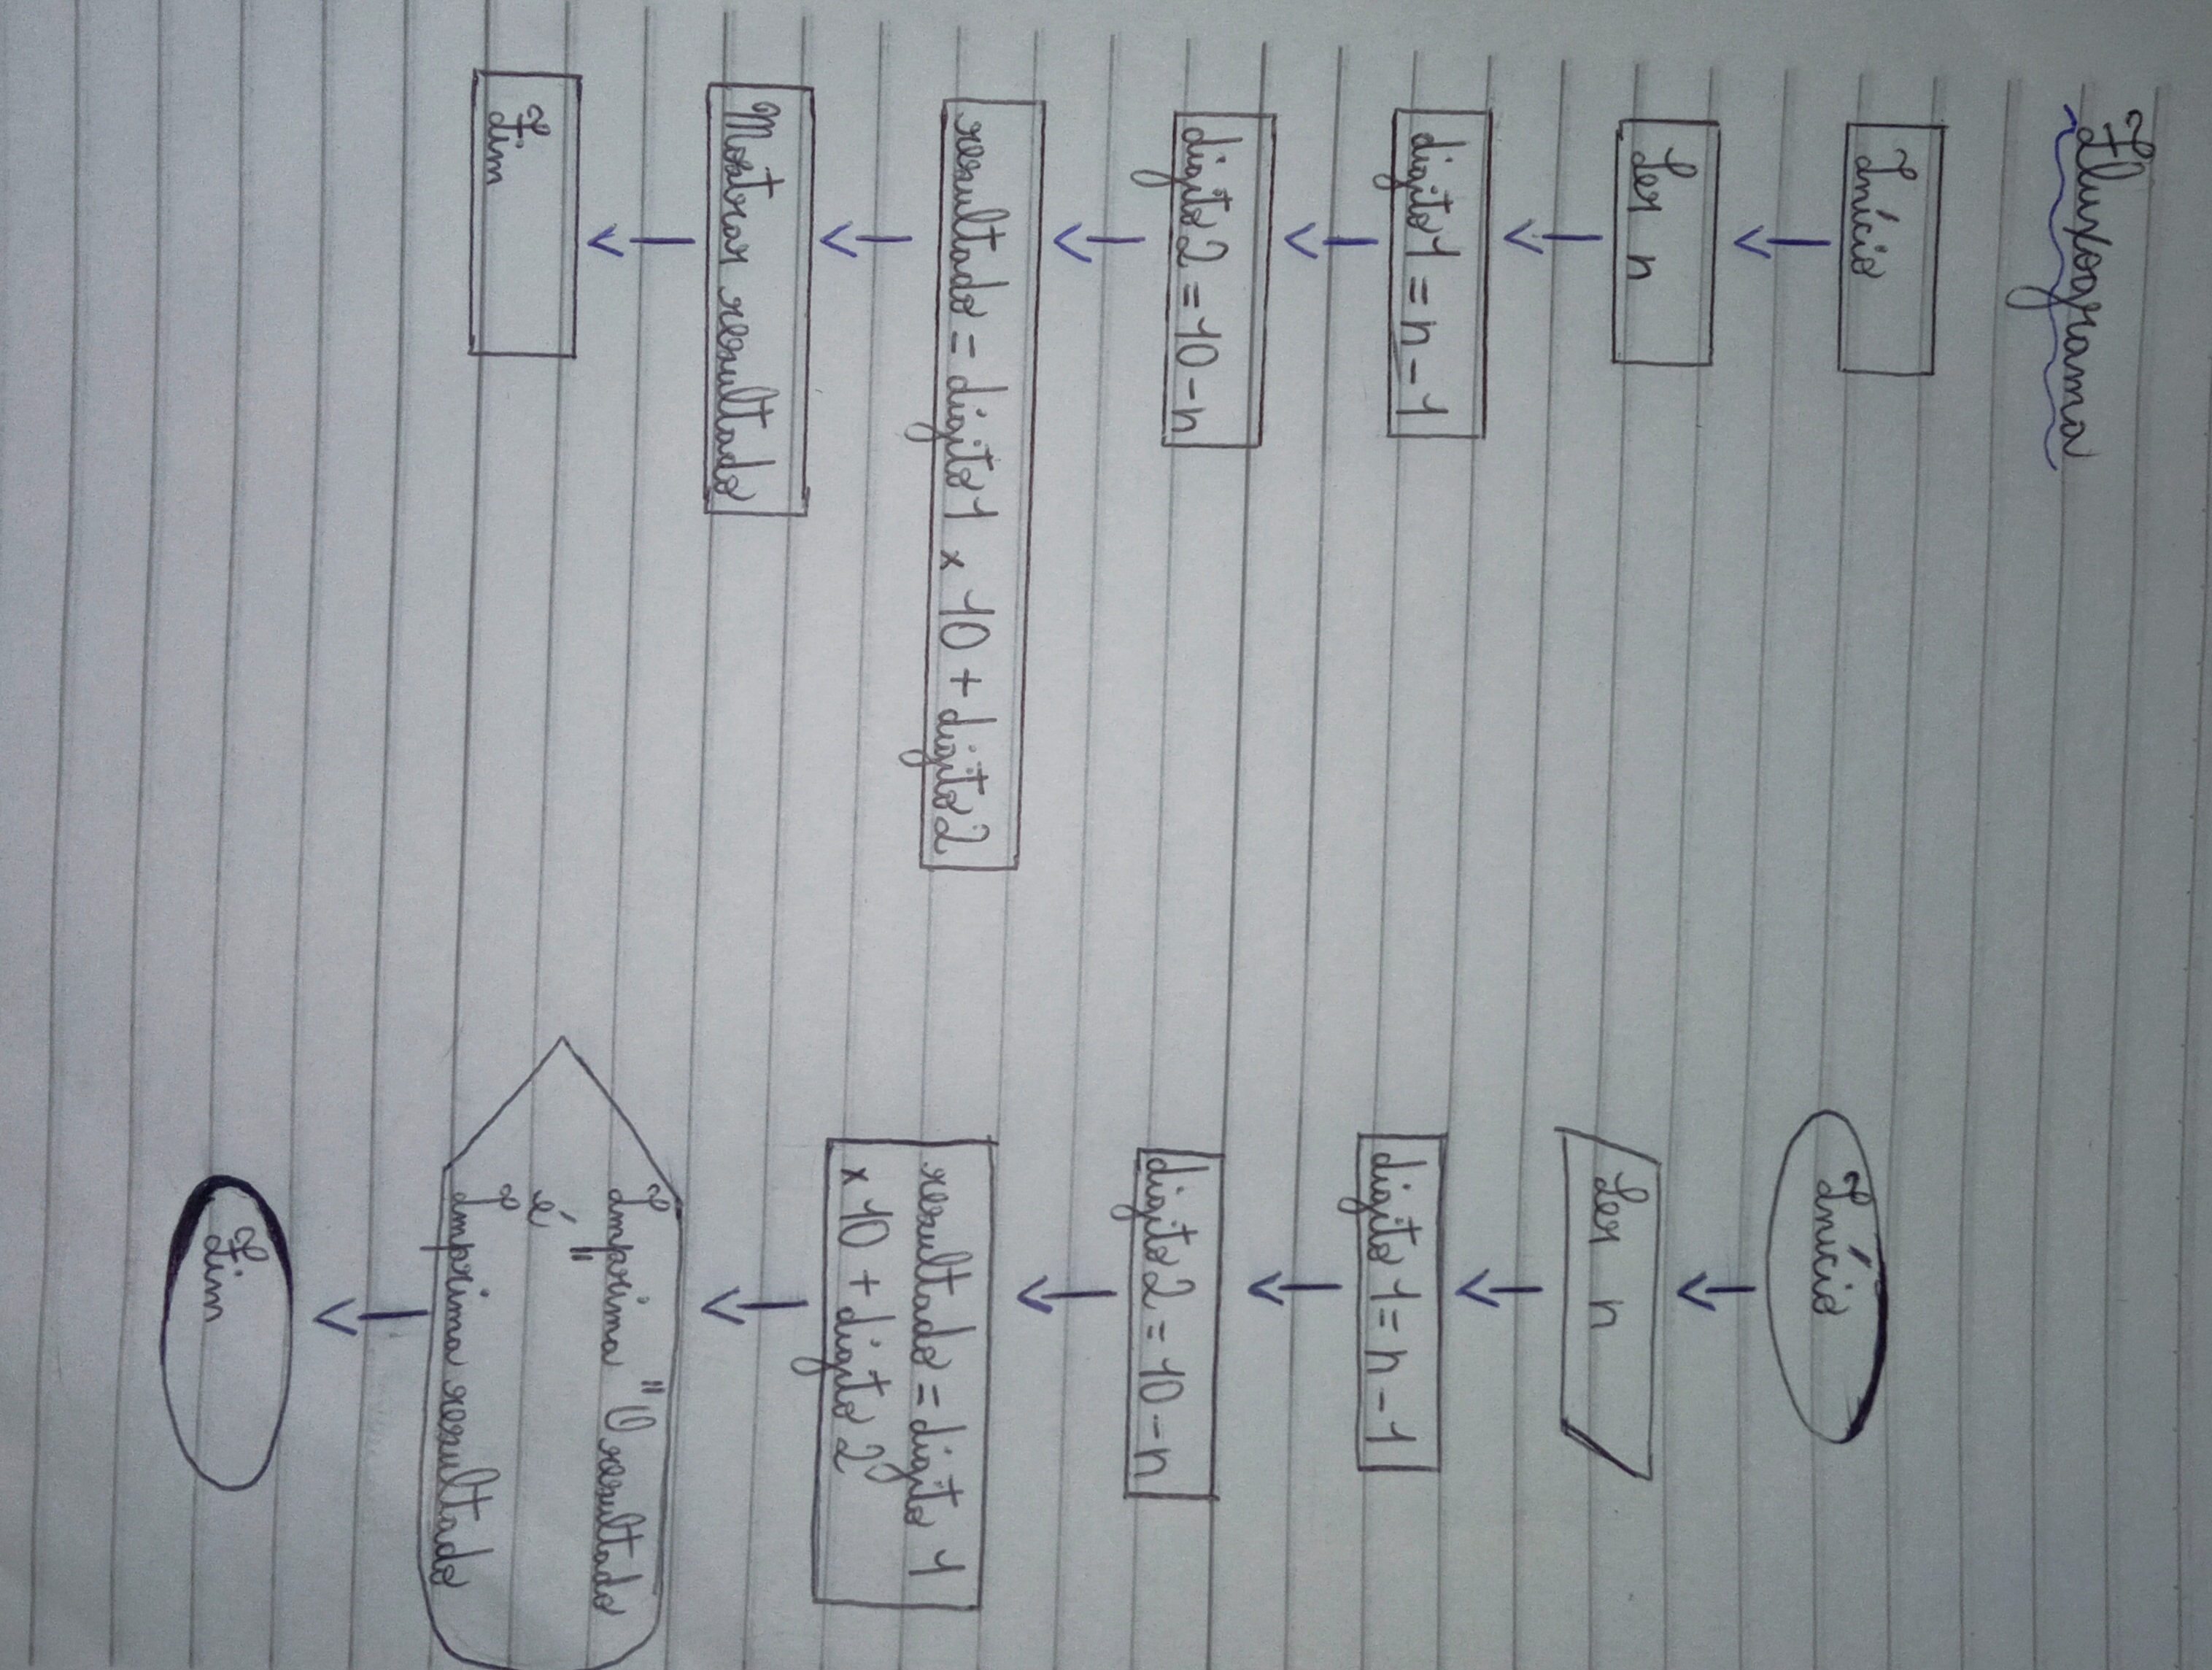 Fluxograma
Início
Ler n
digito1 = n - 1
digito2 = 10 - n
resultado = digito1 x 10 + digito2
Mostrar resultado
Fim
Início
Ler n
digito 1 = n - 1
digito2 = 10 - n
resultado = digito 1
x 10 + digito 2
Imprima "O resultado
é"
Imprima resultado
Fim